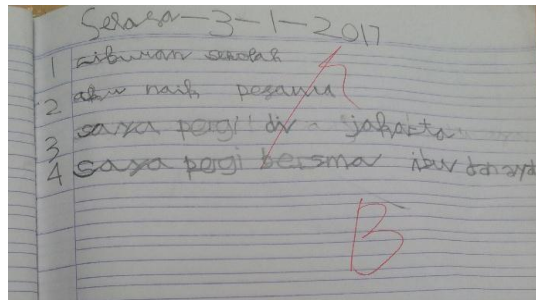 Selasa-3-1-2017
1 Liburan sekolah
2 aku naik pesawa
3 saya pergi di jakarta
4 saya pergi bersma ibu dan aya
B